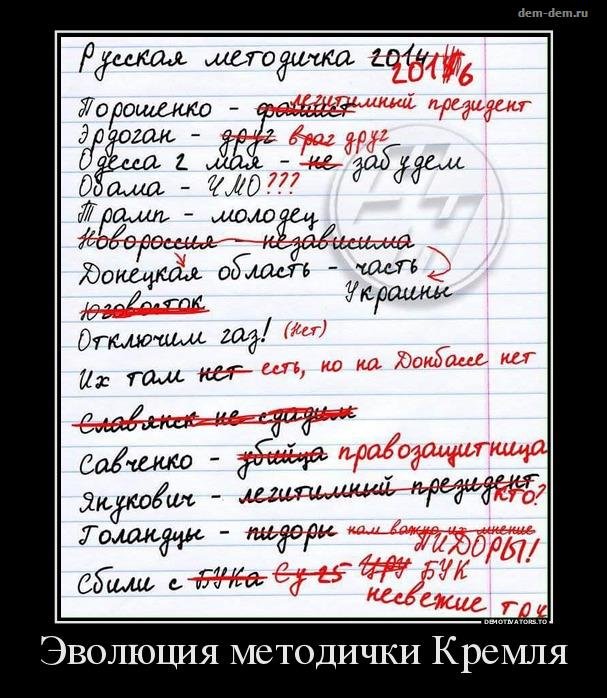 dem-dem.ru
Русская методичка 2014 2016
Порошенко - фашист легитимный президент
Эрдоган - друг враг друг
Одесса 2 мая - не забудем
Обама - ЧМО???
Трамп - молодец
Новороссия - независима
Донецкая область - часть Украины
Юговосток
Отключим газ! (Нет)
Их там нет есть, но на Донбассе нет
Славянск не сдадим
Савченко - убийца правозащитница
Янукович - легитимный президент кто?
Голандцы - пидоры нам важно их мнение
ПИДОРЫ!
Сбили с БУКа Су-25 ЦРУ БУК
несвежие тру
DEMOTIVATORS.TO
Эволюция методички Кремля